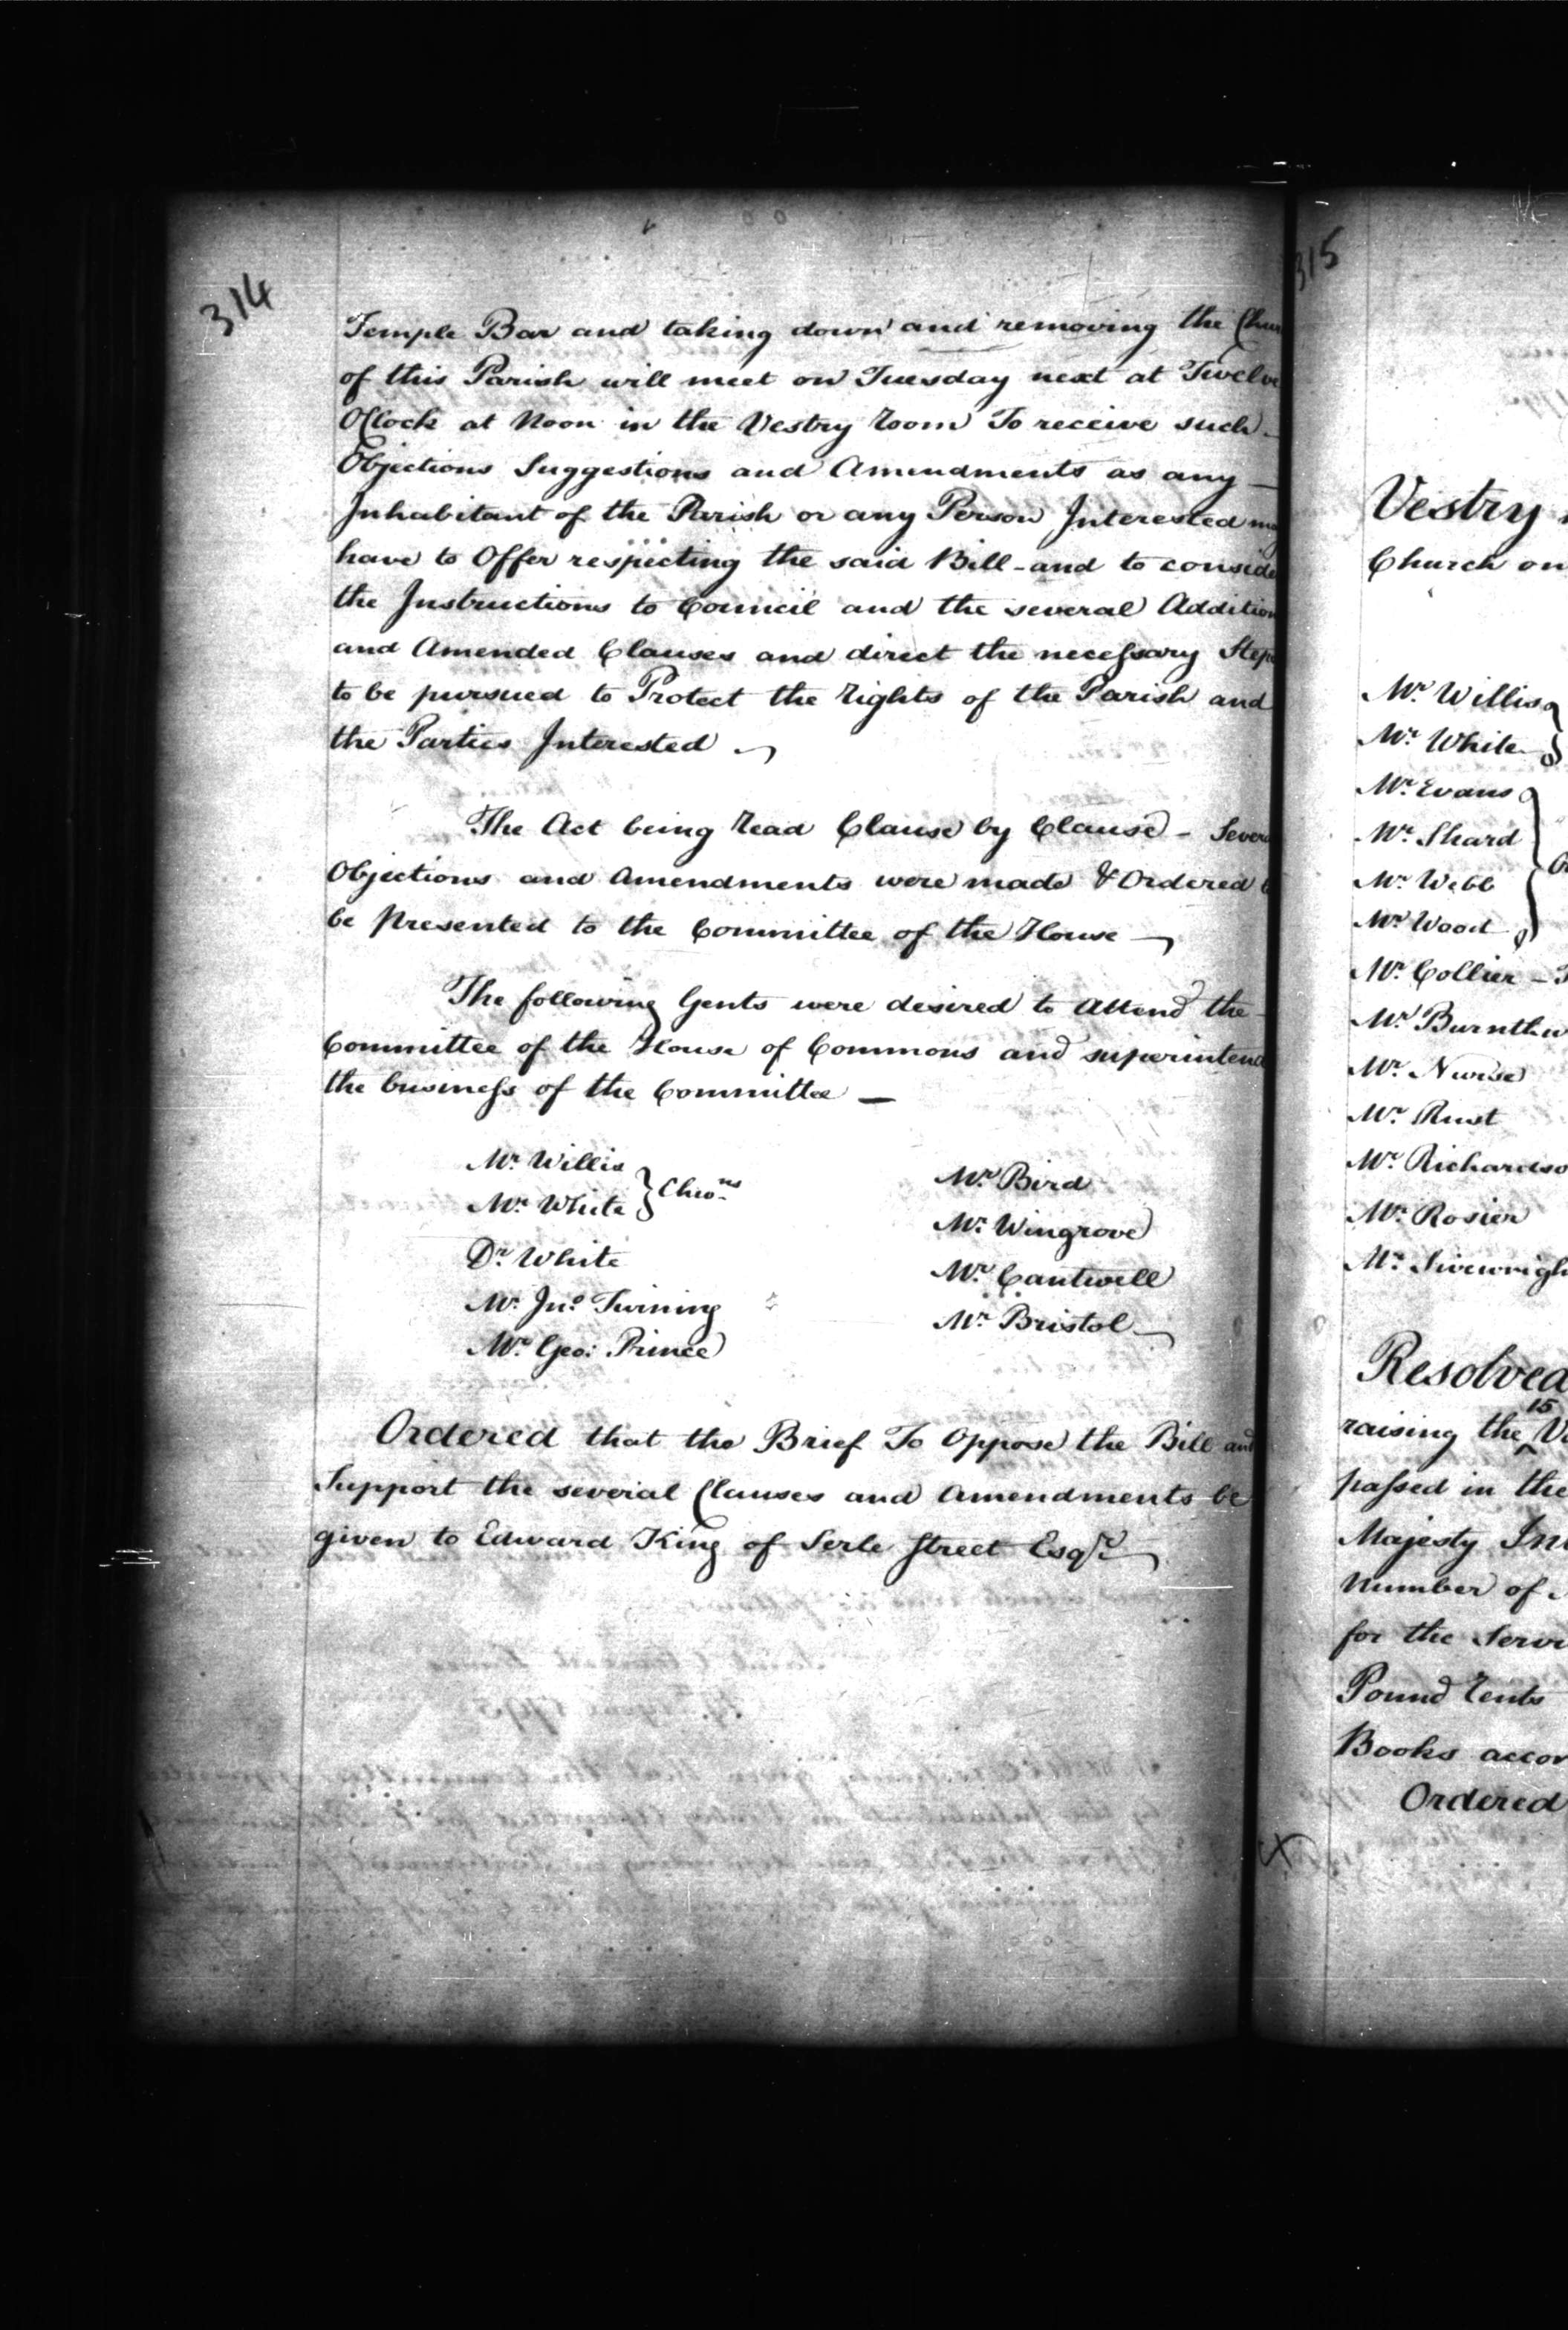 314
Temple Bar and taking down and removing the Chur
of this Parish will meet on Tuesday next at Twelve
OClock at Noon in the Vestry Room To receive such
Objections Suggestions and Amendments as any
Inhabitant of the Parish or any Person Interested may
have to Offer respecting the said Bill - and to conside
the Instructions to Council and the several Addition
and Amended Clauses and direct the necessary Steps
to be pursued to Protect the Rights of the Parish and
the Parties Interested
The Act being Read Clause by Clause - Sever
Objections and Amendments were made & Ordered
be Presented to the Committee of the House
The following Gents were desired to Attend the
Committee of the House of Commons and superintend
the business of the Committee
Mr. Willis
Mr. White } Chwns
Dr. White
Mr. Jno. Twining
Mr. Geo: Prince
Mr. Bird
Mr. Wingrove
Mr. Cantwell
Mr. Bristol
Ordered that the Brief To Oppose the Bill and
Support the several Clauses and Amendments be
given to Edward King of Serle Street Esqr.
315
Vestry
Church on
Mr. Willis
Mr. White
Mr. Evans
Mr. Shard
Mr. Webb
Mr. Wood
Mr. Collier -
Mr. Burnth
Mr. Nurse
Mr. Rust
Mr. Richardso
Mr. Rosier
Mr. Sivewrigh
Resolved
raising the 15 V
passed in the
Majesty In
Number of
for the Servi
Pound Rents
Books accor
Ordered